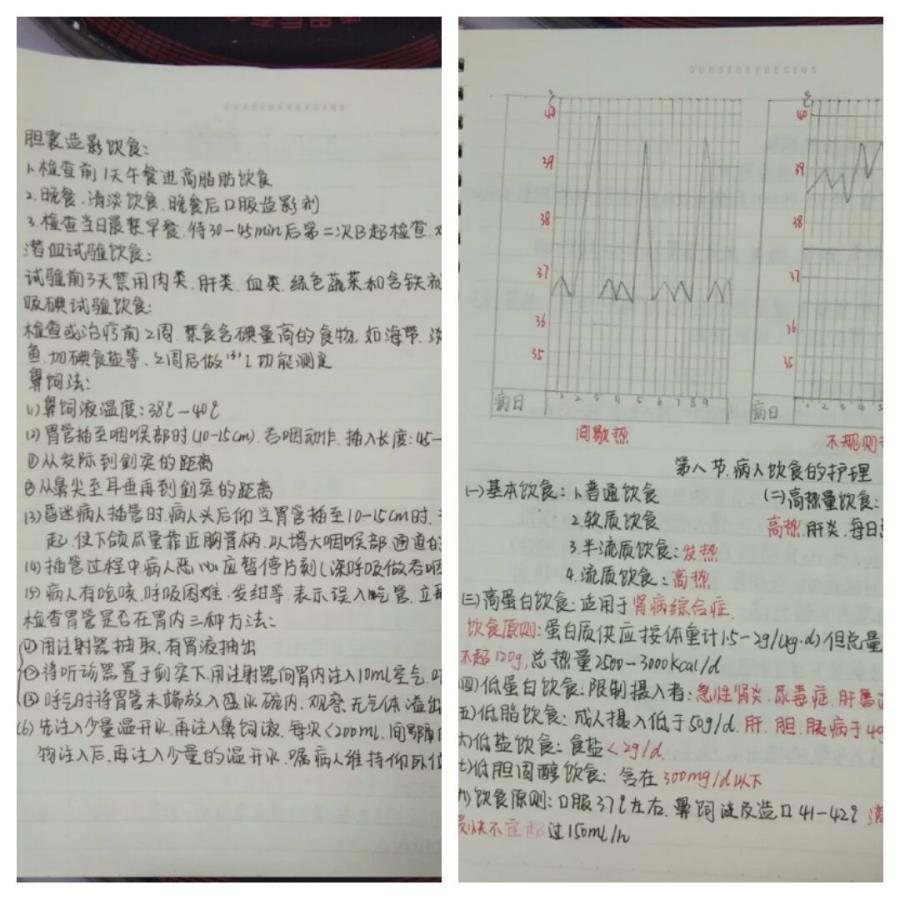 胆囊造影饮食:
1.检查前1天午餐进高脂肪饮食
2.晚餐.清淡饮食.晚餐后口服造影剂
3.检查当日晨禁早餐.待30-45min后第二次B超检查.
潜血试验饮食:
试验前3天禁用肉类.肝类.血类.绿色蔬菜和含铁
吸碘试验饮食:
检查或治疗前2周.禁食含碘量高的食物.如海带.
鱼.加碘食盐等.2周后做131I功能测定
鼻饲法:
(1)鼻饲液温度:38℃-40℃
(2)胃管插至咽喉部时(10-15cm).吞咽动作.插入长度:45-
①从发际到剑突的距离
②从鼻尖至耳垂再到剑突的距离
(3)昏迷病人插管时.病人头后仰当胃管插至10-15cm时.
起.使下颌尽量靠近胸骨柄.以增大咽喉部.通道的
(4)插管过程中病人恶心应暂停片刻(深呼吸做吞咽
(5)病人有呛咳.呼吸困难.发绀等.表示误入气管.立
检查胃管是否在胃内三种方法:
①用注射器抽取.有胃液抽出
②将听诊器置于剑突下.用注射器向胃内注入10ml空气.
③呼气时将胃管末端放入盛水碗内.观察无气体溢出
(6)先注入少量温开水.再注入鼻饲液.每次<200ml.间隔
物注入后.再注入少量的温开水.嘱病人维持仰卧位
OUR STORY BEGINS
℃
40
39
38
37
36
35
病日
1 2 3 4 5 6 7 8 9
间歇热
℃
40
39
38
37
36
35
病日
1 2 3 4 5
不规则
第八节.病人饮食的护理
(一)基本饮食:1.普通饮食
2.软质饮食
3.半流质饮食:发热
4.流质饮食:高热
(二)高热量饮食:
高热.肝炎.每日
(三)高蛋白饮食:适用于肾病综合症.
饮食原则:蛋白质供应按体重计1.5-2g/(kg.d)但总量
不超120g,总热量2500-3000kcal/d
(四)低蛋白饮食:限制摄入者:急性肾炎.尿毒症.肝
(五)低脂饮食:成人摄入低于50g/d.肝.胆.胰病于40
(六)低盐饮食:食盐<2g/d.
(七)低胆固醇饮食:含在300mg/d以下
(八)饮食原则:口服37℃左右.鼻饲液及造口41-42℃
最快不宜超过150ml/h